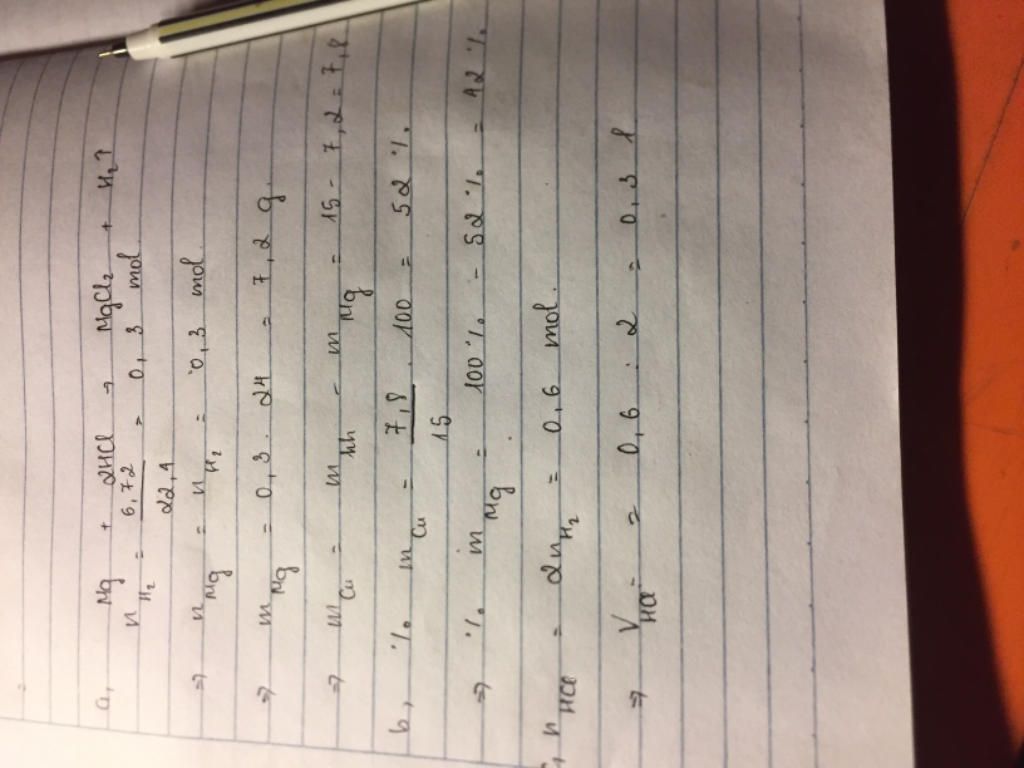 a, Mg + 2HCl → MgCl₂ + H₂↑
n H₂ = 6,72 / 22,4 = 0,3 mol
=> n Mg = n H₂ = 0,3 mol.
=> m Mg = 0,3 . 24 = 7,2 g.
=> m Cu = m hh - m Mg = 15 - 7,2 = 7,8
b, % m Cu = 7,8 / 15 . 100 = 52 %.
=> % m Mg = 100 % - 52 % = 42 %.
, n HCl = 2n H₂ = 0,6 mol.
=> V HCl = 0,6 : 2 = 0,3 l